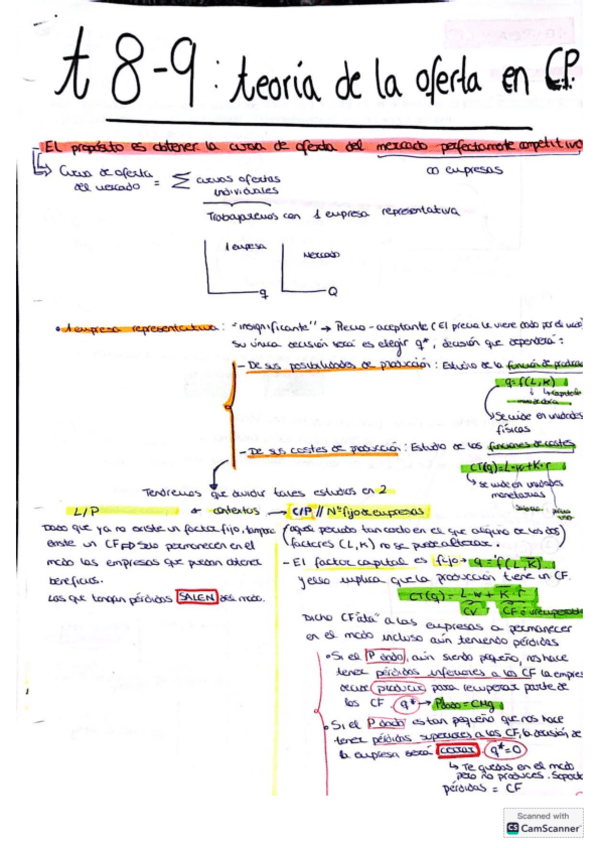 t 8-9: teoría de la oferta en C.P.
El propósito es obtener la curva de oferta del mercado perfectamente competitivo
Curva de oferta del mercado = Σ curvas ofertas individuales
∞ empresas
Trabajaremos con 1 empresa representativa
1 empresa
Mercado
q
Q
• 1 empresa representativa: "insignificante" → Precio-aceptante (El precio le viene dado por el
su única decisión será es elegir q*, decisión que dependerá:
- De sus posibilidades de producción: Estudio de la función de
q = f(L,K)
Se mide en unidades
físicas
- De sus costes de producción: Estudio de las funciones de costes
CT(q)=L·w+K·r
se mide en unidades
monetarias
Tendremos que dividir tales estudios en 2
L/P ← contextos → C/P // Nº fijo de empresas
Dado que ya no existe un factor fijo, tampoco
existe un CF ⇒ Solo permanecen en el
mdo las empresas que puedan obtener
beneficios.
Las que tengan pérdidas SALEN del mdo.
(aquel periodo tan corto en el que alguno de los dos
factores (L,K) no se puede alterar.)
- El factor capital es fijo → q = f(L,K̄)
y ello implica que la producción tiene un CF.
CT(q) = L·w + K̄·r̄
CV
CF
Dicho CF "ata" a las empresas a permanecer
en el mdo incluso aún teniendo pérdidas
• Si el P dado, aún siendo pequeño, nos hace
tener pérdidas inferiores a los CF la empresa
decide producir para recuperar parte de
los CF. q* → Pdado = CMg
• Si el P dado es tan pequeño que nos hace
tener pérdidas superiores a los CF, la decisión de
la empresa será cerrar. q*=0
↳ Te quedas en el mdo
pero no produces. Soporta
pérdidas = CF
Scanned with
CS CamScanner